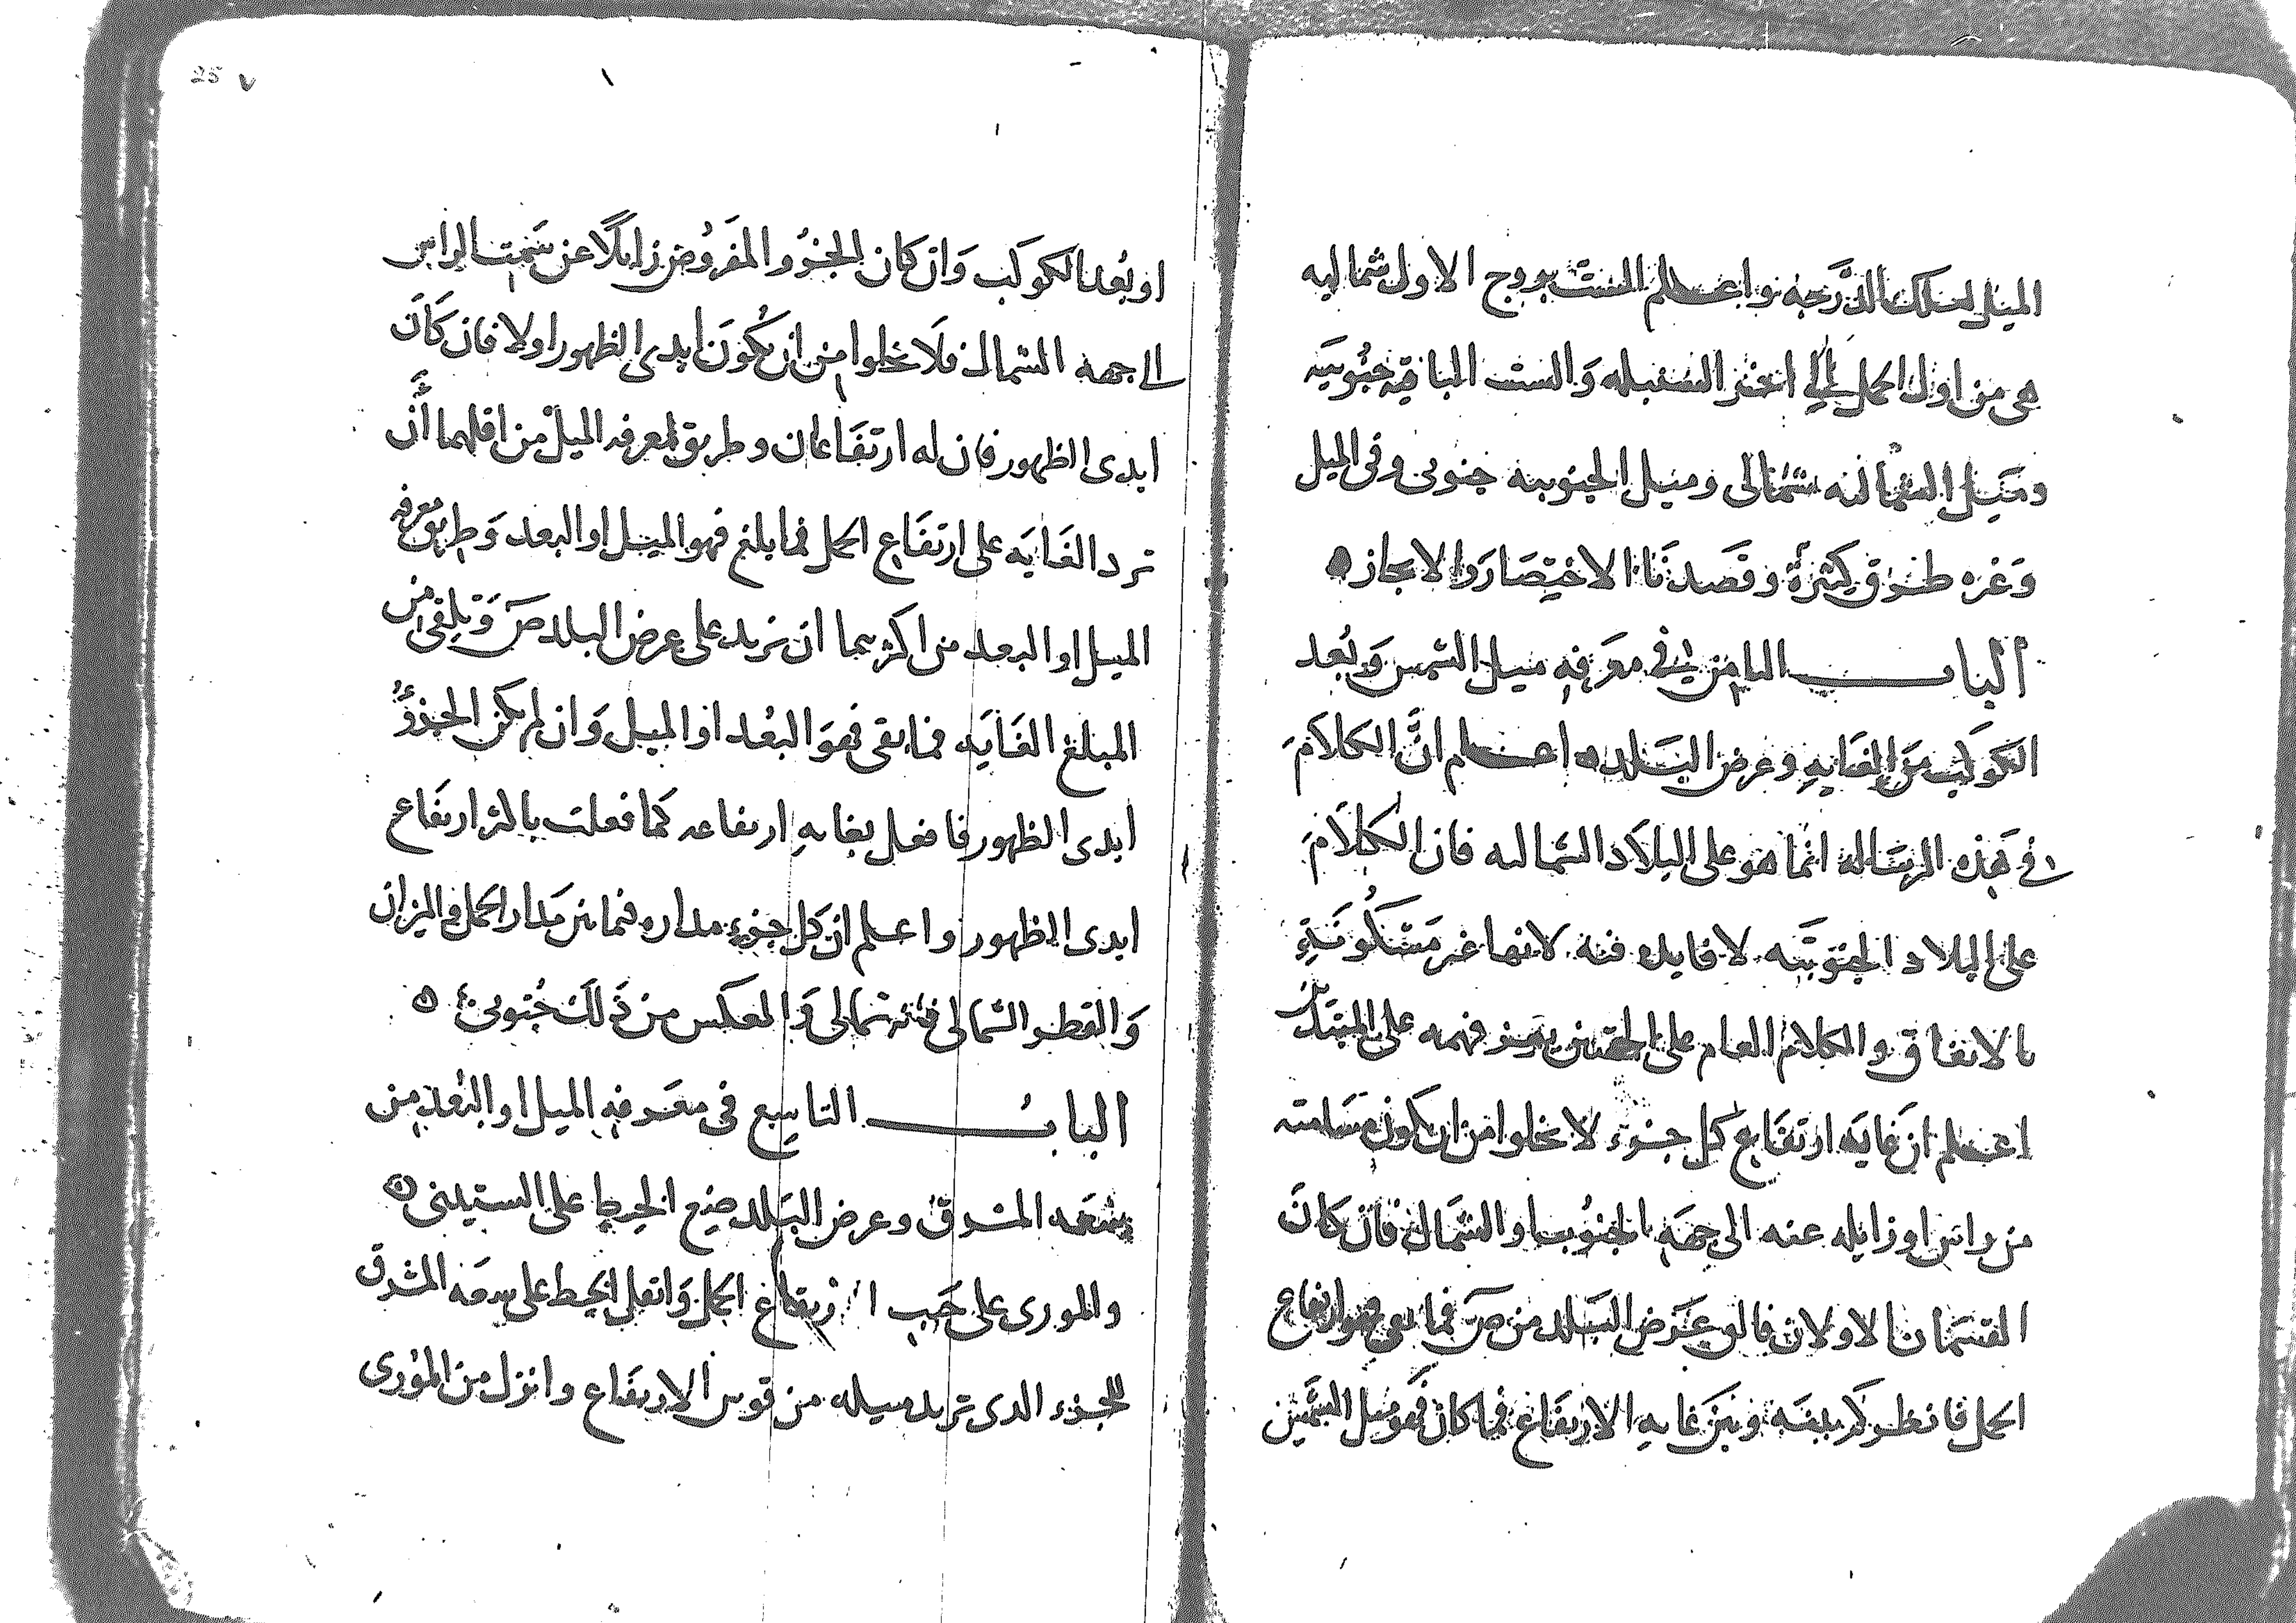 الميل لتلك الدرجه واعلم الست بروج الاول شماليه
هى من اول الحمل الى اخر السنبله والست الباقيه جنوبيه
وميل الشماليه شمالى وميل الجنوبيه جنوبى وفى الميل
وغره طرق كثيرة وقصدنا الاختصار والايجاز ه
الباب الثامن فى معرفه ميل الشمس وبُعد
الكوكب من الغايه وعرض البلد ه اعلم انَّ الكلامَ
فى هذه الرساله انما هو على البلاد الشماليه فان الكلامَ
على البلاد الجنوبيه لا فايده فيه لانها غير مسكونةٍ
بالاتفاق والكلام العام على الجهتين فهمه على المبتدى
اعلم ان غايه ارتفاع كل جزء لا يخلوا من ان يكون مسامته
من راس او زايله عنه الى جهه الجنوب او الشمال فان كان
القسمان الاولان فالق عرض البلد من ص فما بقى فهو ارتفاع
الحمل فانظر كم بينه وبين غايه الارتفاع فما كان فهو ميل الشمس
او بُعد الكوكب وان كان الجزؤ المفرُوض زايلًا عن سمت الراس
الى جهه الشمال فلا يخلوا من ان يكون ابدى الظهور اولا فان كان
ابدى الظهور فان له ارتفاعان وطريق لمعرفه الميل من اقلهما أن
تزد الغايه على ارتفاع الحمل فما بلغ فهو الميل او البعد وطريق معرفه
الميل او البعد من اكثرهما ان تزيد على عرض البلد ص وتلقى من
المبلغ الغايه فما بقى فهو البُعد او الميل وان لم يكن الجزؤُ
ابدى الظهور فافعل بغايه ارتفاعه كما فعلت باكثر ارتفاع
ابدى الظهور واعلم ان كل جزءٍ مداره فيما بين مدار الحمل والميزان
والقطر الشمالى فميله شمالى والعكس من ذلك جُنوبى ه
الباب التاسع فى معرفه الميل او البُعد من
سعه المشرق وعرض البلد ضع الخيط على الستينى ه
والمورى على جيب ارتفاع الحمل وانقل الخيط على سعه المشرق
للجزء الدى تريد ميله من قوس الارتفاع وانزل من المُورى